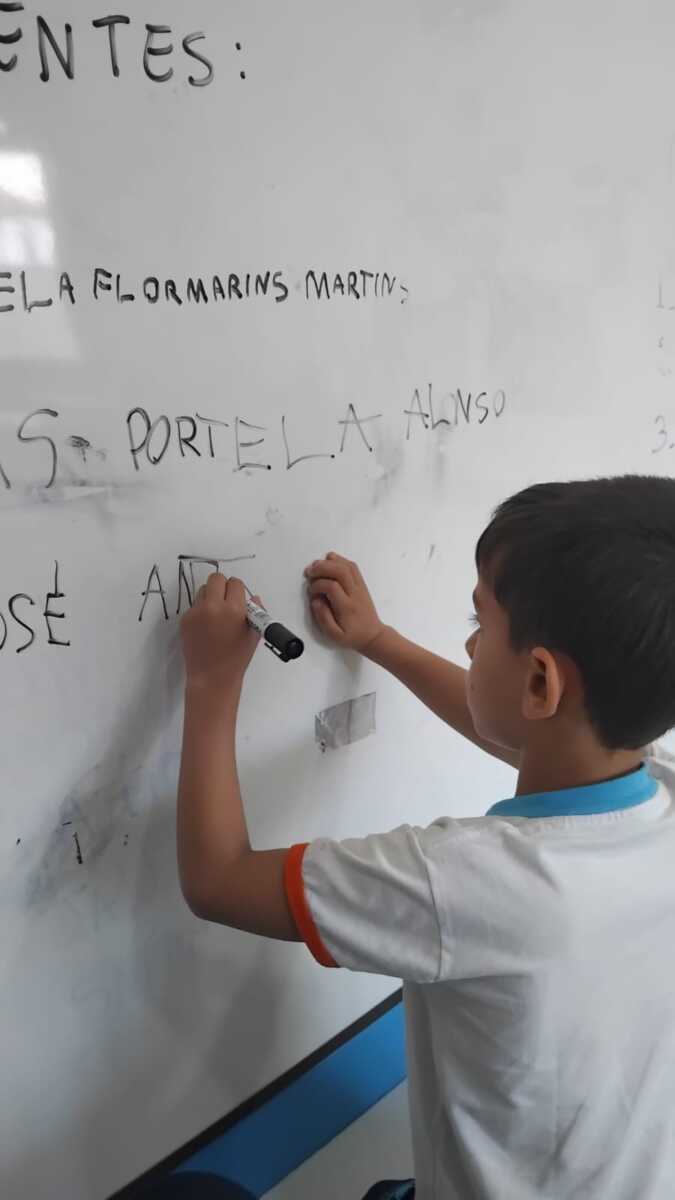 ENTES:
ELA FLORMARINS MARTINS
AS PORTELA ALONSO
OSÉ ANT
1.
3.